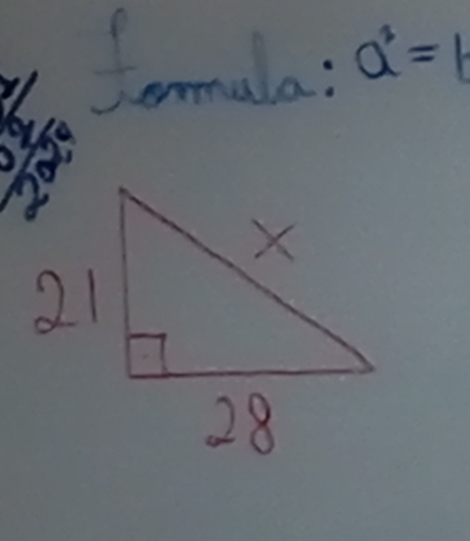 Formula: a² =
x
21
28